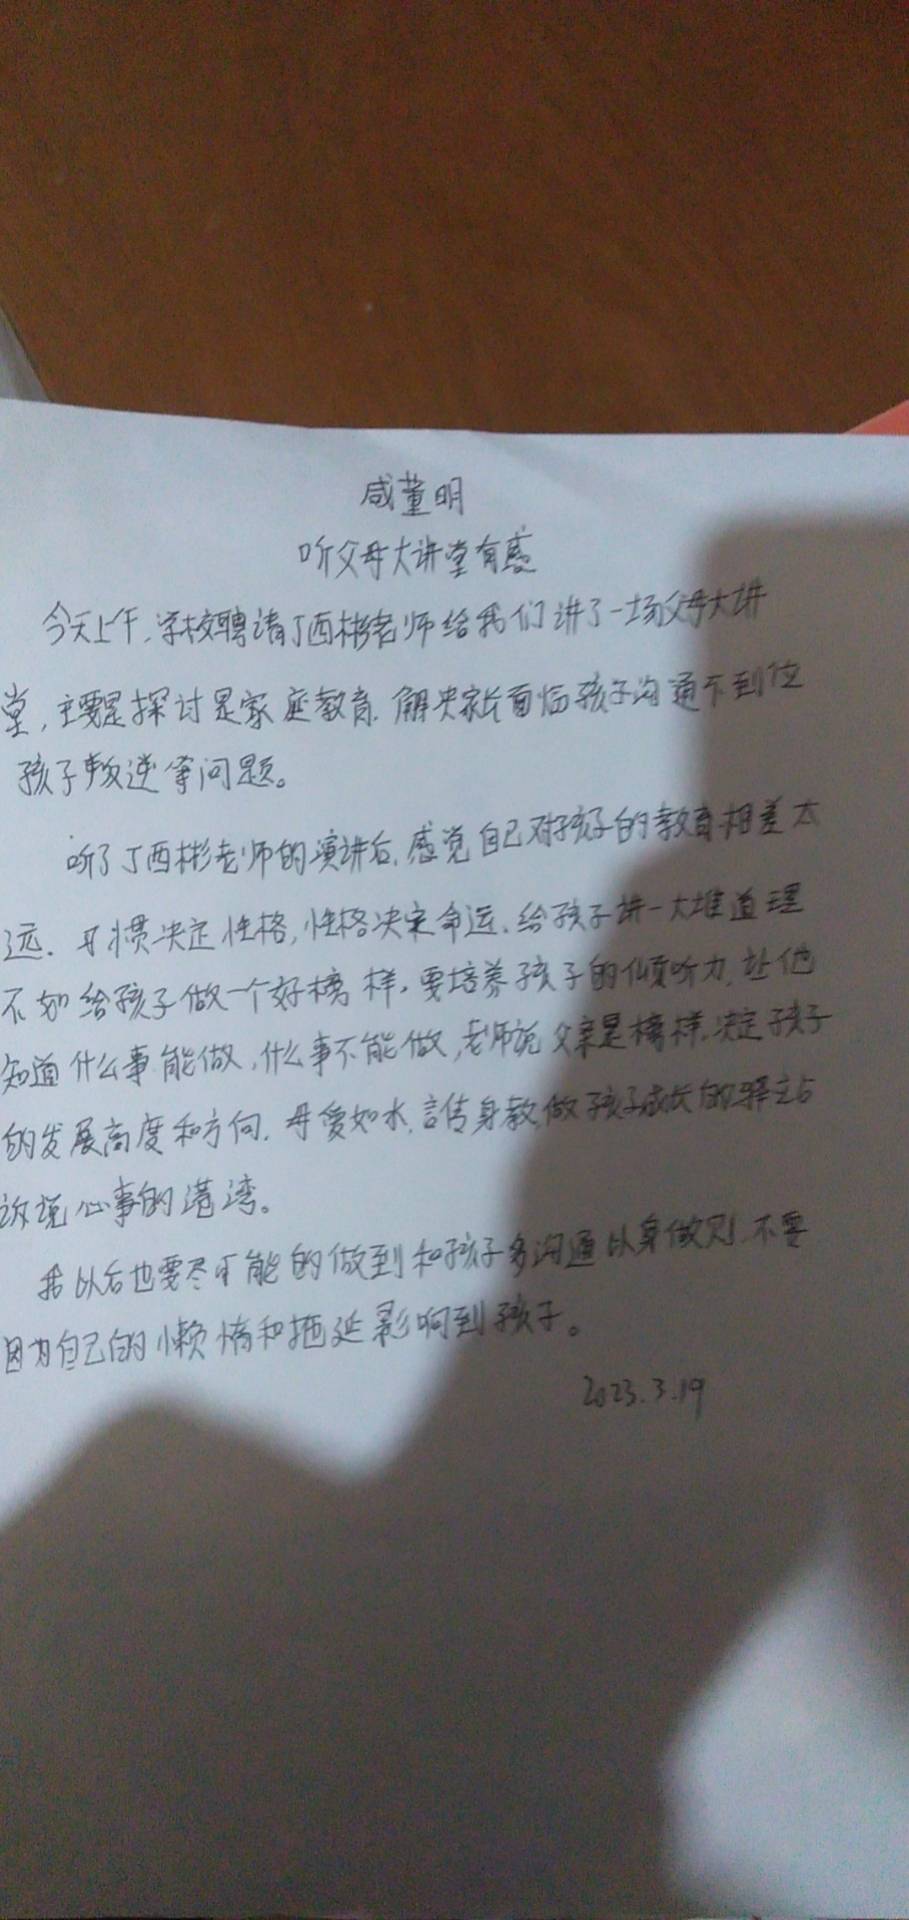 咸董明
听父母大讲堂有感
今天上午,学校聘请丁西彬老师给我们讲了一场父母大讲
堂,主要是探讨是家庭教育.解决家长面临孩子沟通不到位
孩子叛逆等问题。
听了丁西彬老师的演讲后,感觉自己对孩子的教育相差太
远.习惯决定性格,性格决定命运.给孩子讲一大堆道理
不如给孩子做一个好榜样,要培养孩子的倾听力,让他
知道什么事能做,什么事不能做,老师说父亲是榜样.决定孩子
的发展高度和方向.母爱如水,言传身教做孩子成长的驿站
诉说心事的港湾。
我以后也要尽可能的做到和孩子多沟通以身做则.不要
因为自己的懒惰和拖延影响到孩子。
2023.3.19